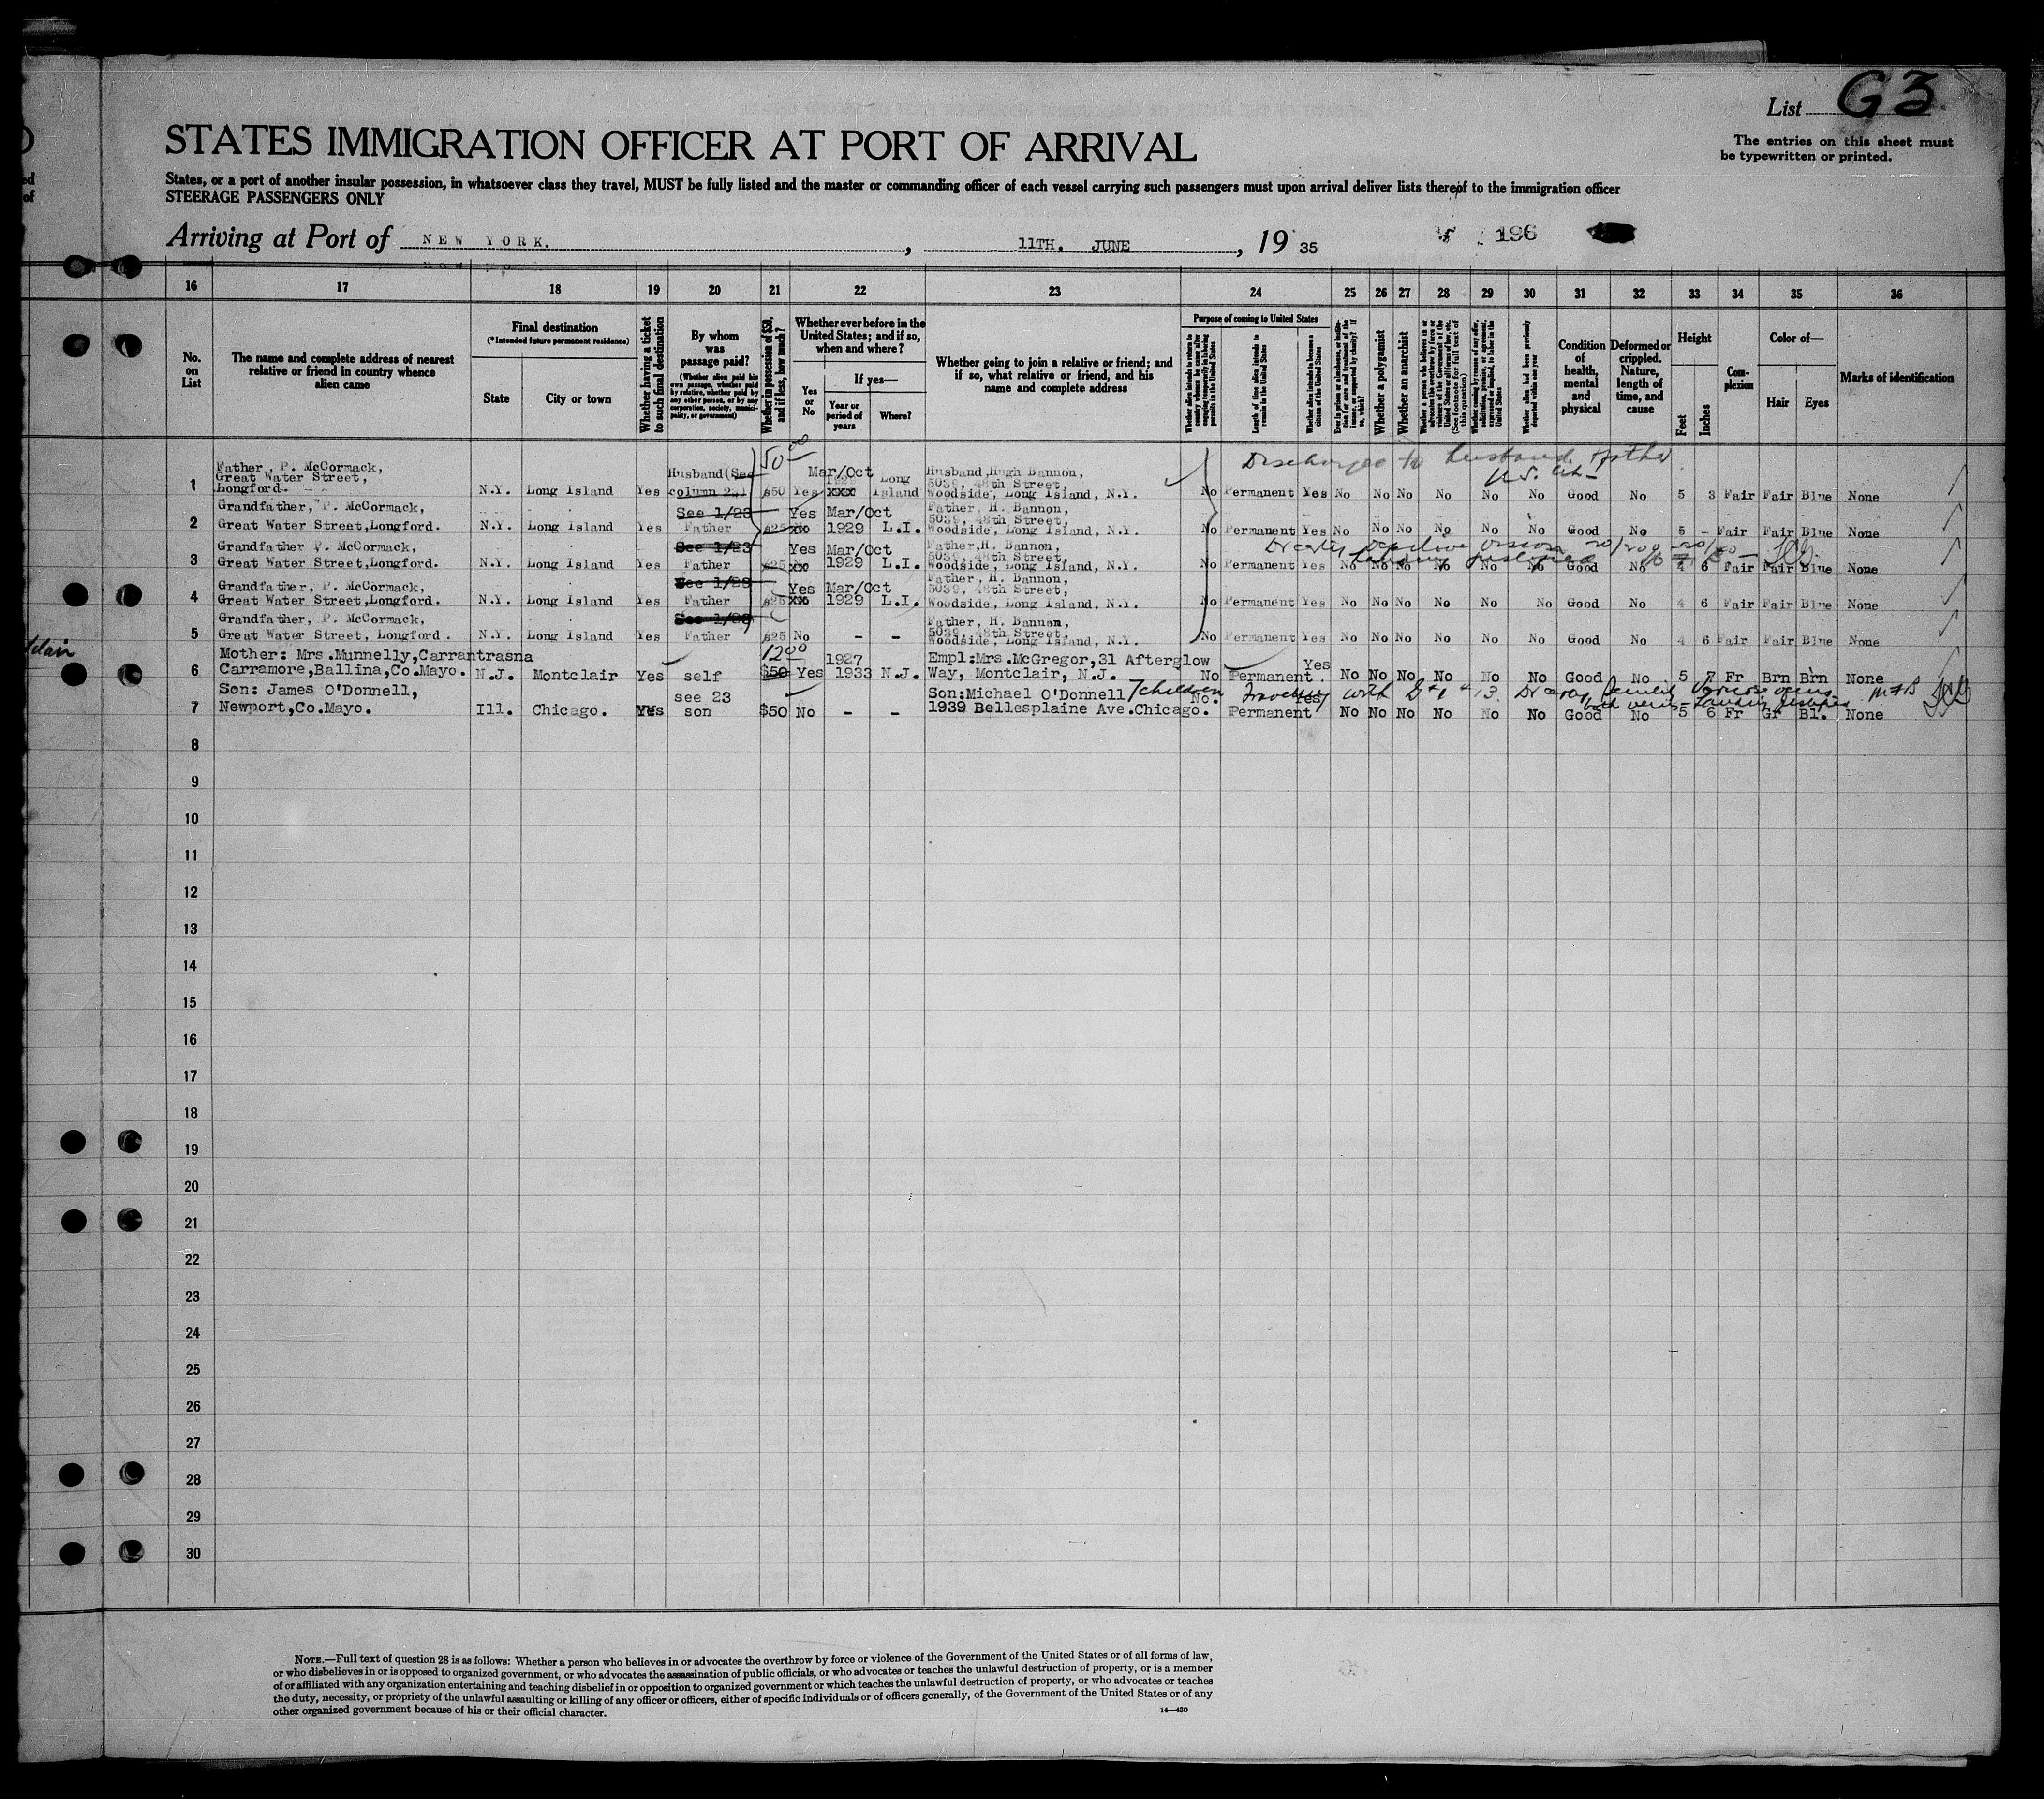 List G3
STATES IMMIGRATION OFFICER AT PORT OF ARRIVAL
The entries on this sheet must
be typewritten or printed.
States, or a port of another insular possession, in whatsoever class they travel, MUST be fully listed and the master or commanding officer of each vessel carrying such passengers must upon arrival deliver lists thereof to the immigration officer
STEERAGE PASSENGERS ONLY
Arriving at Port of NEW YORK. , 11TH. JUNE , 19 35
196
16 17 18 19 20 21 22 23 24 25 26 27 28 29 30 31 32 33 34 35 36
No. on List
The name and complete address of nearest relative or friend in country whence alien came
Final destination
(*Intended future permanent residence)
State
City or town
Whether having a ticket to such final destination
By whom was passage paid?
(Whether alien paid his own passage, whether paid by relative, whether paid by any other person, or by any corporation, society, municipality, or government)
Whether in possession of $50, and if less, how much?
Whether ever before in the United States; and if so, when and where?
Yes or No
If yes—
Year or period of years
Where?
Whether going to join a relative or friend; and if so, what relative or friend, and his name and complete address
Purpose of coming to United States
Length of time alien intends to remain in the United States
Whether alien intends to become a citizen of the United States
Whether a polygamist
Whether an anarchist
(See footnote for full text of this question)
Whether alien had been previously deported within one year
Condition of health, mental and physical
Deformed or crippled. Nature, length of time, and cause
Height
Feet
Inches
Complexion
Color of—
Hair
Eyes
Marks of identification
50 00
Discharged to husband
U.S. Cit
1 Father, P. McCormack, Great Water Street, Longford. N.Y. Long Island Yes Husband (See column 23) $50 Yes Mar/Oct 1929 Long Island Husband Hugh Bannon, 5039, 48th Street, Woodside, Long Island, N.Y. No Permanent Yes No No No No No No Good No 5 3 Fair Fair Blue None
2 Grandfather, P. McCormack, Great Water Street, Longford. N.Y. Long Island Yes See 1/23 Father $25 Yes Mar/Oct 1929 L.I. Father, H. Bannon, 5039, 48th Street, Woodside, Long Island, N.Y. No Permanent Yes No No No No No No Good No 5 - Fair Fair Blue None
3 Grandfather P. McCormack, Great Water Street, Longford. N.Y. Long Island Yes See 1/23 Father $25 Yes Mar/Oct 1929 L.I. Father, H. Bannon, 5039, 48th Street, Woodside, Long Island, N.Y. No Permanent Yes No No No No No No Good No 4 6 Fair Fair Blue None
4 Grandfather, P. McCormack, Great Water Street, Longford. N.Y. Long Island Yes See 1/23 Father $25 Yes Mar/Oct 1929 L.I. Father, H. Bannon, 5039, 48th Street, Woodside, Long Island, N.Y. No Permanent Yes No No No No No No Good No 4 6 Fair Fair Blue None
5 Grandfather, P. McCormack, Great Water Street, Longford. N.Y. Long Island Yes See 1/23 Father $25 No - - Father, H. Bannon, 5039, 48th Street, Woodside, Long Island, N.Y. No Permanent Yes No No No No No No Good No 4 6 Fair Fair Blue None
6 Mother: Mrs. Munnelly, Carrantrasna Carramore, Ballina, Co. Mayo. N.J. Montclair Yes self 12 00 $50 Yes 1927 1933 N.J. Empl: Mrs. McGregor, 31 Afterglow Way, Montclair, N.J. No Permanent. Yes No No No No No No Good No 5 7 Fr Brn Brn None
7 Son: James O'Donnell, Newport, Co. Mayo. Ill. Chicago. Yes see 23 son $50 No - - Son: Michael O'Donnell 1939 Bellesplaine Ave. Chicago. No. Permanent Yes No No No No No No Good No 5 6 Fr Gr Bl. None
7 children
8
9
10
11
12
13
14
15
16
17
18
19
20
21
22
23
24
25
26
27
28
29
30
NOTE.—Full text of question 28 is as follows: Whether a person who believes in or advocates the overthrow by force or violence of the Government of the United States or of all forms of law,
or who disbelieves in or is opposed to organized government, or who advocates the assassination of public officials, or who advocates or teaches the unlawful destruction of property, or is a member
of or affiliated with any organization entertaining and teaching disbelief in or opposition to organized government or which teaches the unlawful destruction of property, or who advocates or teaches
the duty, necessity, or propriety of the unlawful assaulting or killing of any officer or officers, either of specific individuals or of officers generally, of the Government of the United States or of any
other organized government because of his or their official character.
14—430